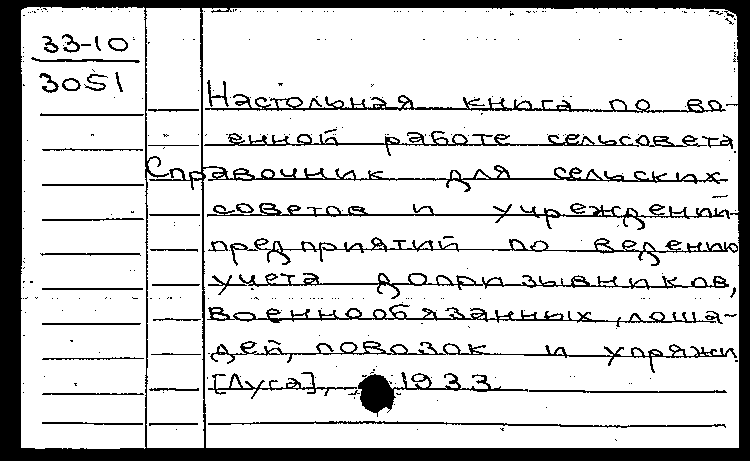 33-10
3051
Настольная книга по во-
енной работе сельсовета
Справочник для сельских
советов и учреждений
предприятий по ведению
учета допризывников,
военнообязанных, лоша-
дей, повозок и упряжи
[Луга], 1933